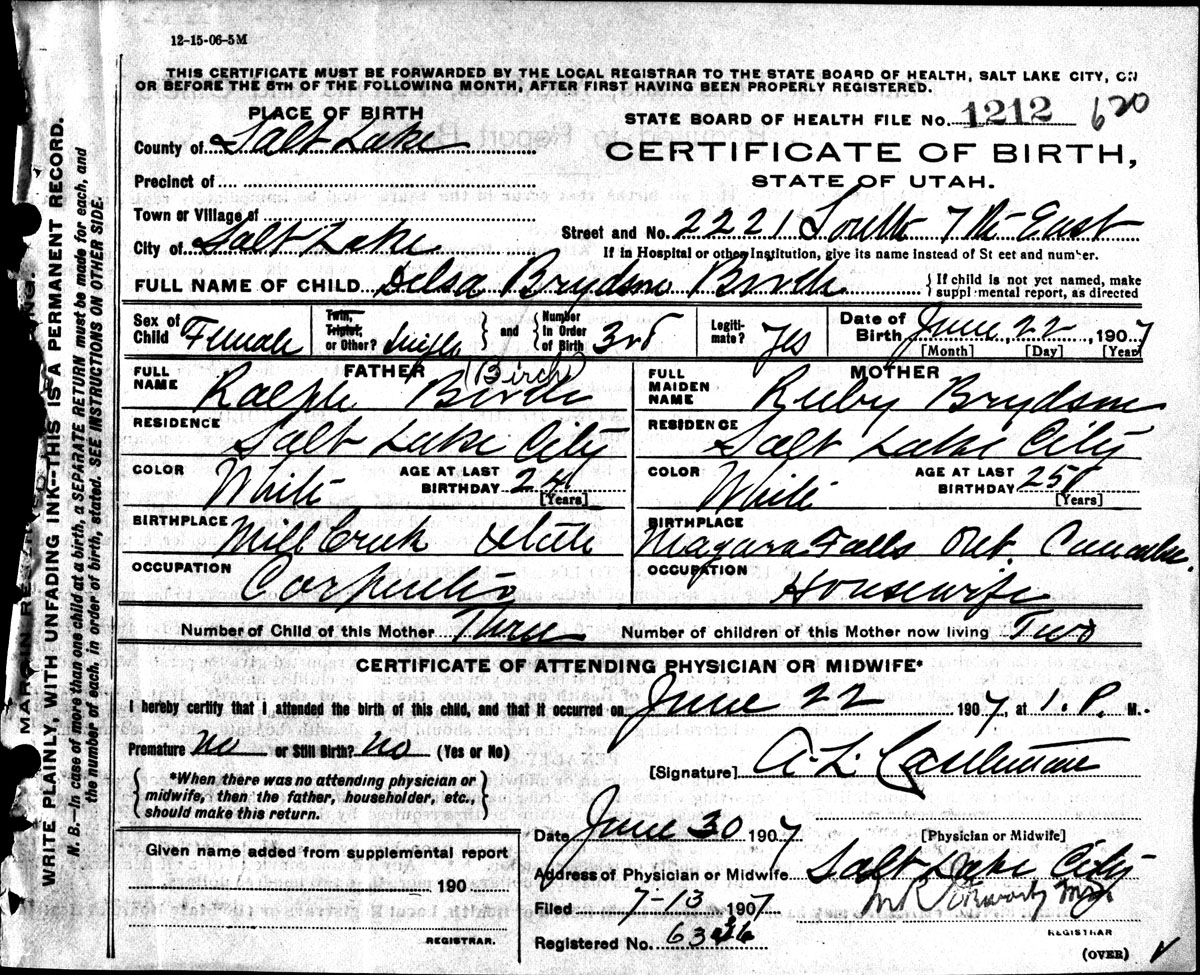 12-15-06-5M
THIS CERTIFICATE MUST BE FORWARDED BY THE LOCAL REGISTRAR TO THE STATE BOARD OF HEALTH, SALT LAKE CITY, ON
OR BEFORE THE 5TH OF THE FOLLOWING MONTH, AFTER FIRST HAVING BEEN PROPERLY REGISTERED.
PLACE OF BIRTH
STATE BOARD OF HEALTH FILE No. 1212 620
County of Salt Lake
CERTIFICATE OF BIRTH,
Precinct of
STATE OF UTAH.
Town or Village of
Street and No. 2221 South 7th East
City of Salt Lake
If in Hospital or other Institution, give its name instead of St eet and number.
FULL NAME OF CHILD Delsa Brydson Birch
If child is not yet named, make
suppl mental report, as directed
Sex of Child Female
Twin, Triplet, or Other? Single and Number in Order of Birth 3rd
Legitimate? Yes
Date of Birth June 22, 1907
[Month] [Day] [Year]
FATHER
FULL NAME Ralph Birch (Birch)
RESIDENCE Salt Lake City
COLOR White AGE AT LAST BIRTHDAY 24
[Years]
BIRTHPLACE Mill Creek Utah
OCCUPATION Carpenter
MOTHER
FULL MAIDEN NAME Ruby Brydson
RESIDENCE Salt Lake City
COLOR White AGE AT LAST BIRTHDAY 25
[Years]
BIRTHPLACE Niagara Falls Ont. Canada.
OCCUPATION Housewife
Number of Child of this Mother Three Number of children of this Mother now living Two
CERTIFICATE OF ATTENDING PHYSICIAN OR MIDWIFE*
I hereby certify that I attended the birth of this child, and that it occurred on June 22 1907, at 1. P. M.
Premature? no or Still Birth? no (Yes or No)
*When there was no attending physician or
midwife, then the father, householder, etc.,
should make this return.
[Signature] A. L.
[Physician or Midwife]
Date June 30 1907
Address of Physician or Midwife Salt Lake City
Filed 7-13 1907
REGISTRAR
Registered No.
(OVER)
Given name added from supplemental report
190
REGISTRAR.
MARGIN RE
WRITE PLAINLY, WITH UNFADING INK--THIS IS A PERMANENT RECORD.
N. B.—In case of more than one child at a birth, a SEPARATE RETURN must be made for each, and
the number of each, in order of birth, stated. SEE INSTRUCTIONS ON OTHER SIDE.